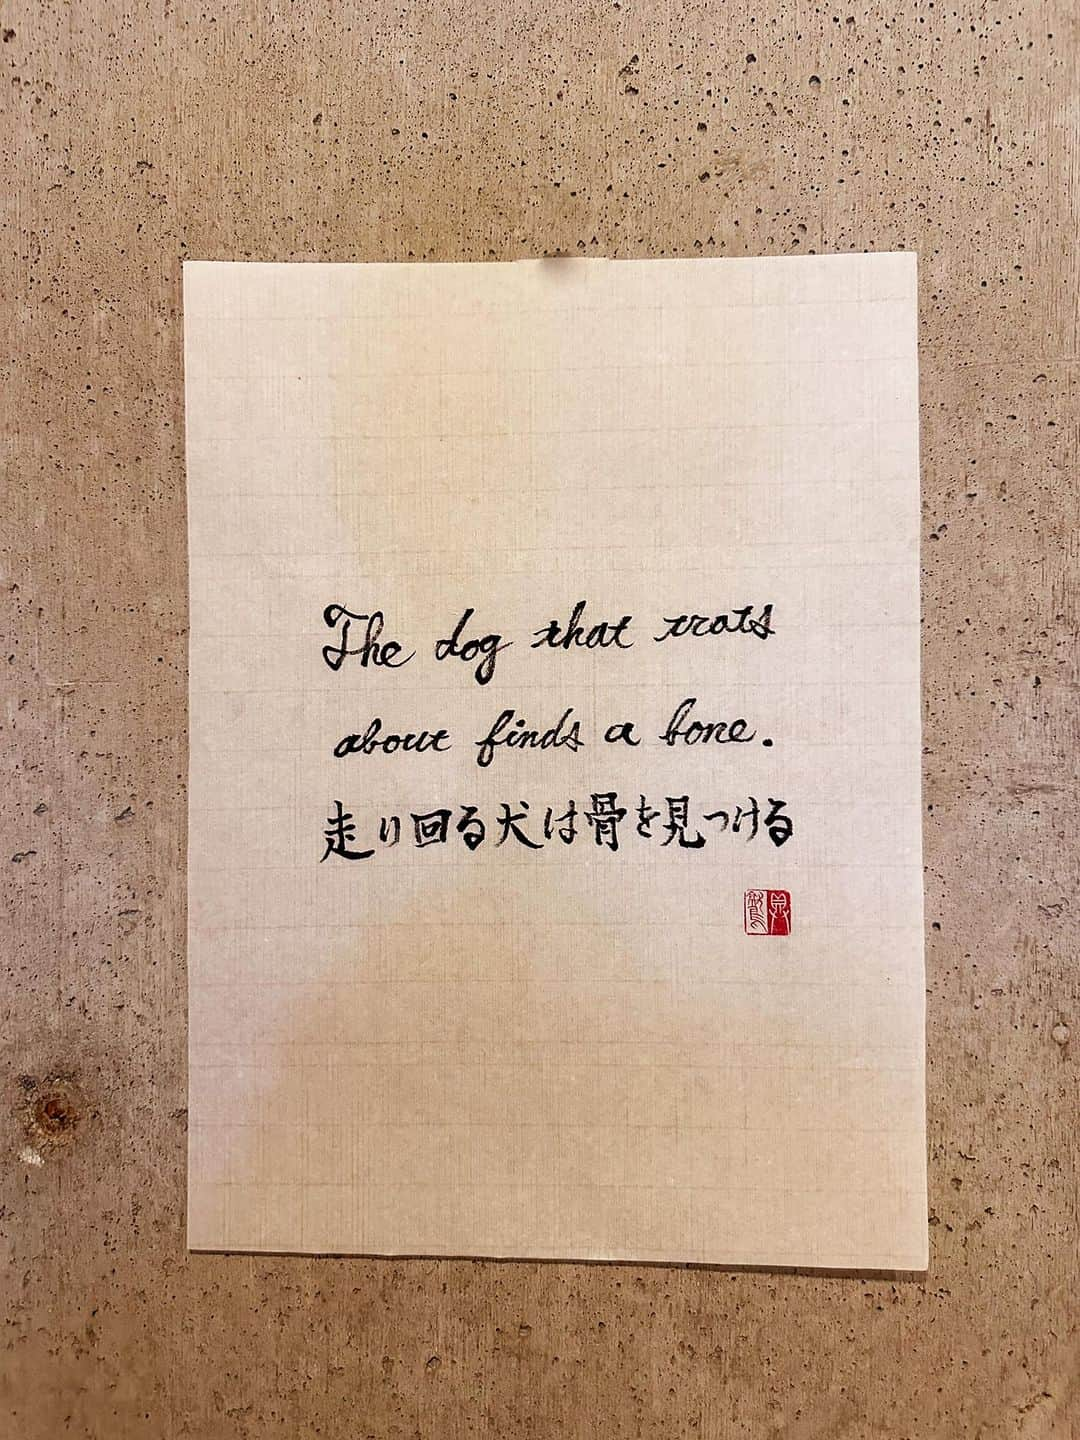 The dog that trots
about finds a bone.
走り回る犬は骨を見つける